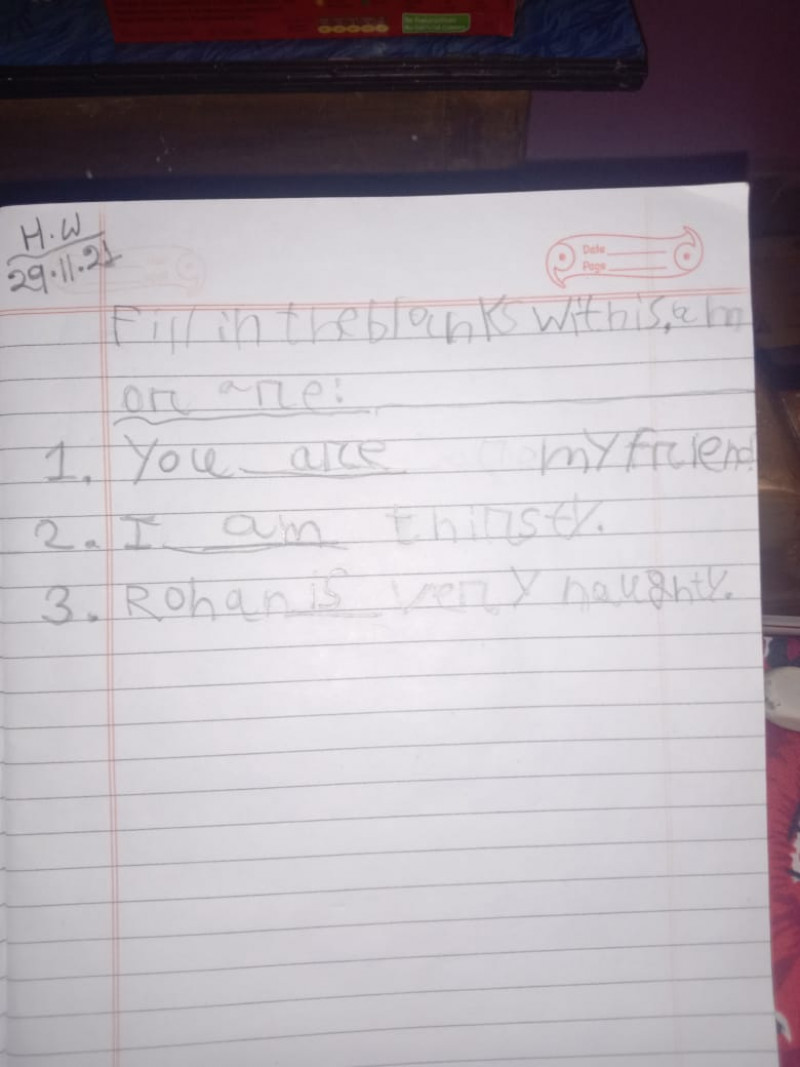 H.W
29.11.21
Date
Page
Fill in the blanks with is, am
or are:
1. You are my friend
2. I am thirsty.
3. Rohan is very naughty.